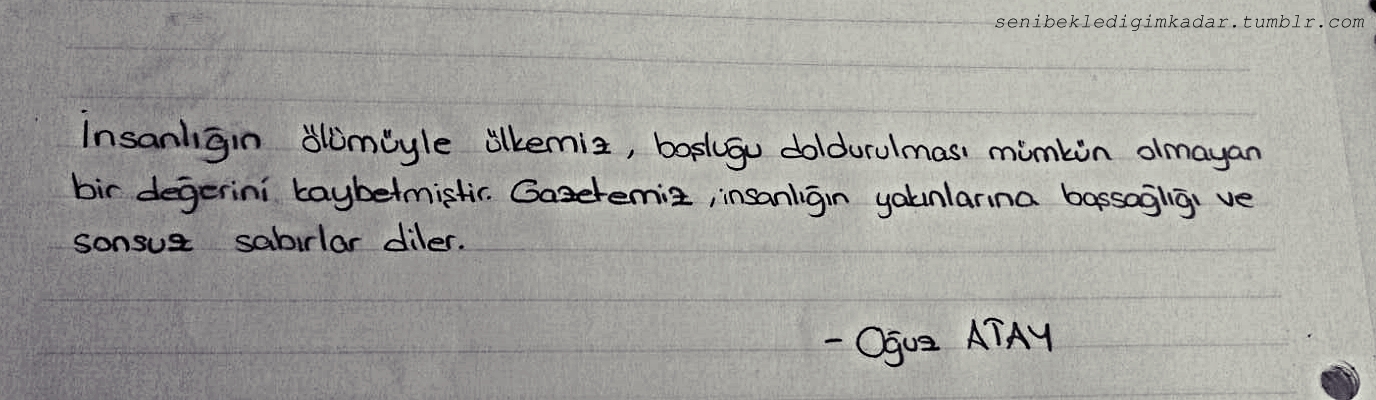 senibekledigimkadar.tumblr.com
İnsanlığın ölümüyle ülkemiz, boşluğu doldurulması mümkün olmayan
bir değerini kaybetmiştir. Gazetemiz, insanlığın yakınlarına başsağlığı ve
sonsuz sabırlar diler.
- Oğuz ATAY